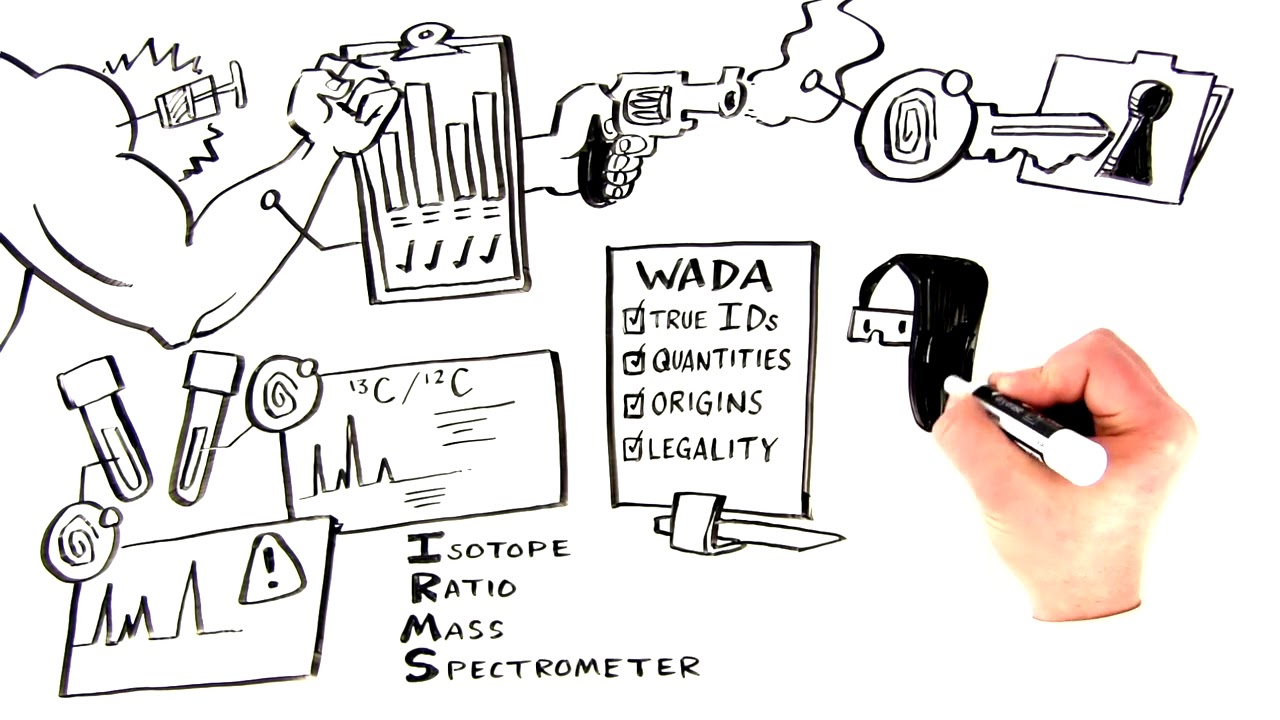 ¹³C/¹²C
WADA
TRUE IDs
QUANTITIES
ORIGINS
LEGALITY
ISOTOPE
RATIO
MASS
SPECTROMETER